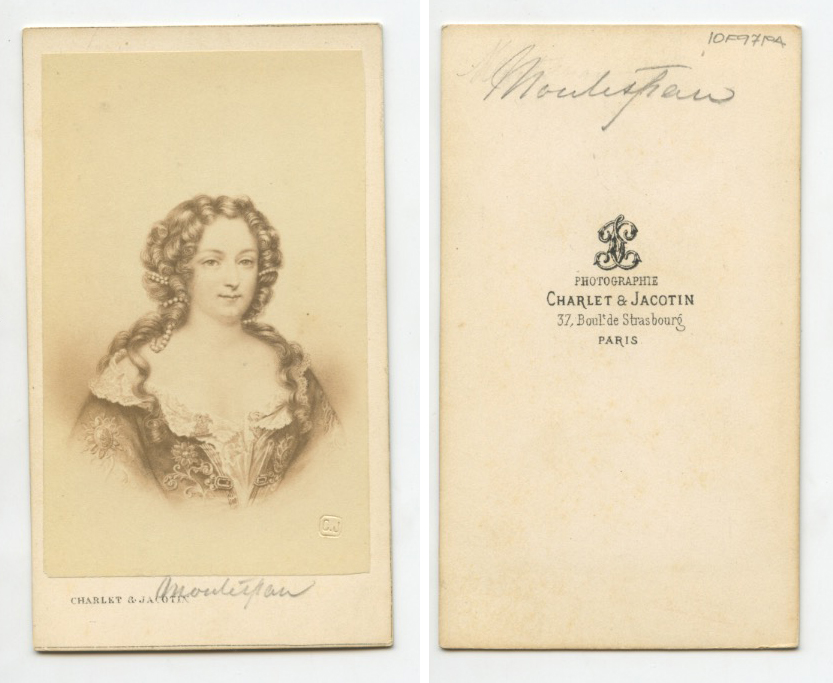 CHARLET & JACOTIN
Montespan
Montespan
PHOTOGRAPHIE
CHARLET & JACOTIN
37, Boulᵗ de Strasbourg
PARIS